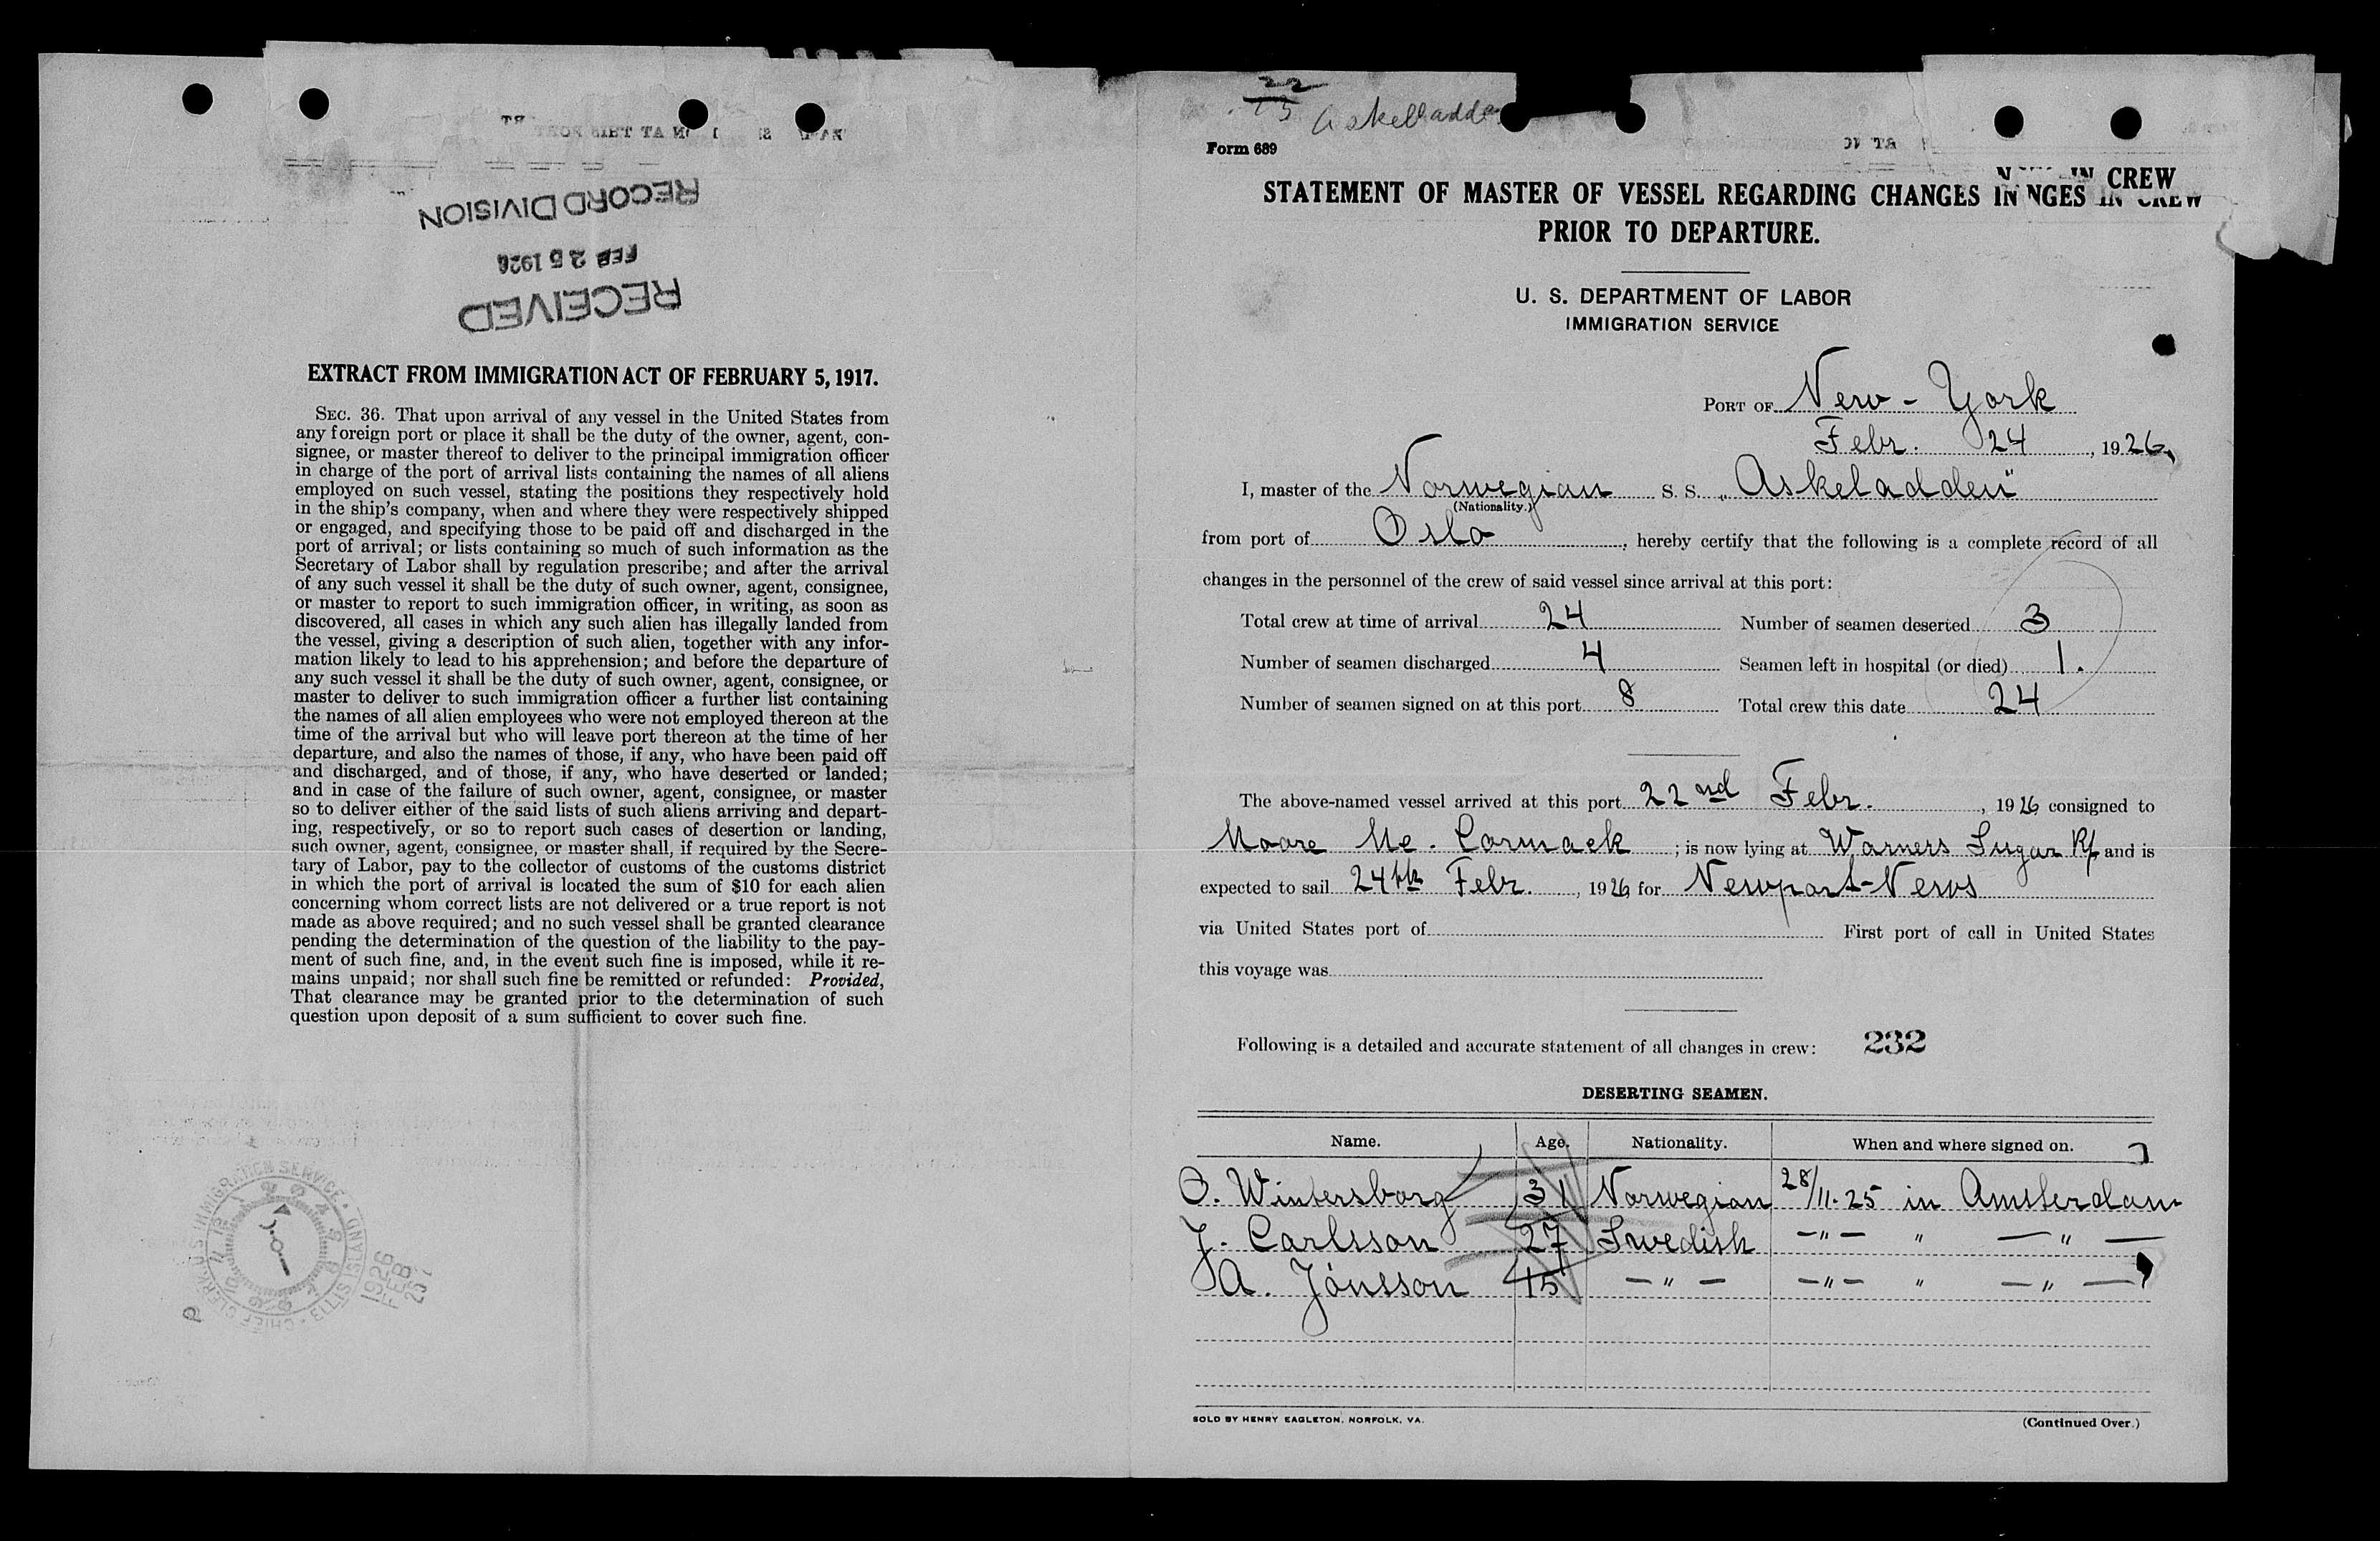 RECORD DIVISION
FEB 25 1926
RECEIVED
EXTRACT FROM IMMIGRATION ACT OF FEBRUARY 5, 1917.
SEC. 36. That upon arrival of any vessel in the United States from
any foreign port or place it shall be the duty of the owner, agent, con-
signee, or master thereof to deliver to the principal immigration officer
in charge of the port of arrival lists containing the names of all aliens
employed on such vessel, stating the positions they respectively hold
in the ship's company, when and where they were respectively shipped
or engaged, and specifying those to be paid off and discharged in the
port of arrival; or lists containing so much of such information as the
Secretary of Labor shall by regulation prescribe; and after the arrival
of any such vessel it shall be the duty of such owner, agent, consignee,
or master to report to such immigration officer, in writing, as soon as
discovered, all cases in which any such alien has illegally landed from
the vessel, giving a description of such alien, together with any infor-
mation likely to lead to his apprehension; and before the departure of
any such vessel it shall be the duty of such owner, agent, consignee, or
master to deliver to such immigration officer a further list containing
the names of all alien employees who were not employed thereon at the
time of the arrival but who will leave port thereon at the time of her
departure, and also the names of those, if any, who have been paid off
and discharged, and of those, if any, who have deserted or landed;
and in case of the failure of such owner, agent, consignee, or master
so to deliver either of the said lists of such aliens arriving and depart-
ing, respectively, or so to report such cases of desertion or landing,
such owner, agent, consignee, or master shall, if required by the Secre-
tary of Labor, pay to the collector of customs of the customs district
in which the port of arrival is located the sum of $10 for each alien
concerning whom correct lists are not delivered or a true report is not
made as above required; and no such vessel shall be granted clearance
pending the determination of the question of the liability to the pay-
ment of such fine, and, in the event such fine is imposed, while it re-
mains unpaid; nor shall such fine be remitted or refunded: Provided,
That clearance may be granted prior to the determination of such
question upon deposit of a sum sufficient to cover such fine.
CHIEF CLERK. U.S. IMMIGRATION SERVICE. ELLIS ISLAND
1926
FEB
25
22
Askeladden
Form 689
IN CREW
STATEMENT OF MASTER OF VESSEL REGARDING CHANGES IN NGES IN CREW
PRIOR TO DEPARTURE.
U. S. DEPARTMENT OF LABOR
IMMIGRATION SERVICE
PORT OF New-York
Febr. 24, 1926
I, master of the Norwegian S. S. „Askeladden"
(Nationality.)
from port of Oslo, hereby certify that the following is a complete record of all
changes in the personnel of the crew of said vessel since arrival at this port:
Total crew at time of arrival 24 Number of seamen deserted 3
Number of seamen discharged 4 Seamen left in hospital (or died) 1.
Number of seamen signed on at this port 8 Total crew this date 24
The above-named vessel arrived at this port 22nd Febr., 1926 consigned to
Moore Mc. Cormack; is now lying at Warners Sugar Rf and is
expected to sail 24th Febr., 1926, for Newport-News
via United States port of First port of call in United States
this voyage was
Following is a detailed and accurate statement of all changes in crew: 232
DESERTING SEAMEN.
Name. Age. Nationality. When and where signed on.
O. Wintersborg 31 Norwegian 28/11-25 in Amsterdam
J. Carlsson 27 Swedish —"— " —"—
A. Jónsson 15 —"— —"— " —"—
SOLD BY HENRY EAGLETON, NORFOLK, VA.
(Continued Over.)